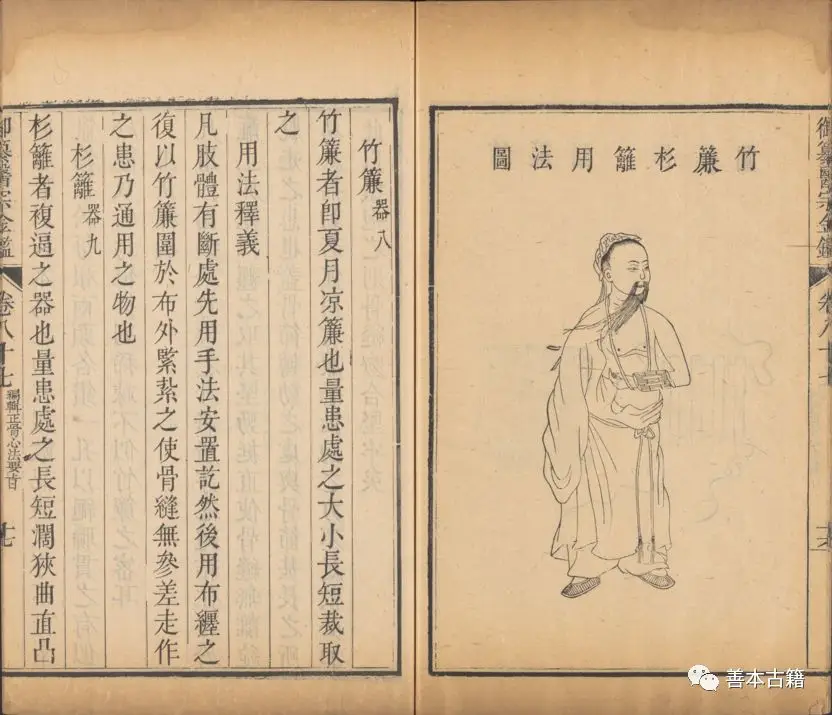 御纂醫宗金鑑
卷八十七
竹簾杉籬用法圖
竹簾器八
竹簾者即夏月凉簾也量患處之大小長短裁取
之
用法釋義
凡肢體有斷處先用手法安置訖然後用布纏之
復以竹簾圍於布外緊紮之使骨縫無參差走作
之患乃通用之物也
杉籬器九
杉籬者複逼之器也量患處之長短濶狹曲直凸
御纂醫宗金鑑
卷八十七
編輯正骨心法要旨
十七
善本古籍